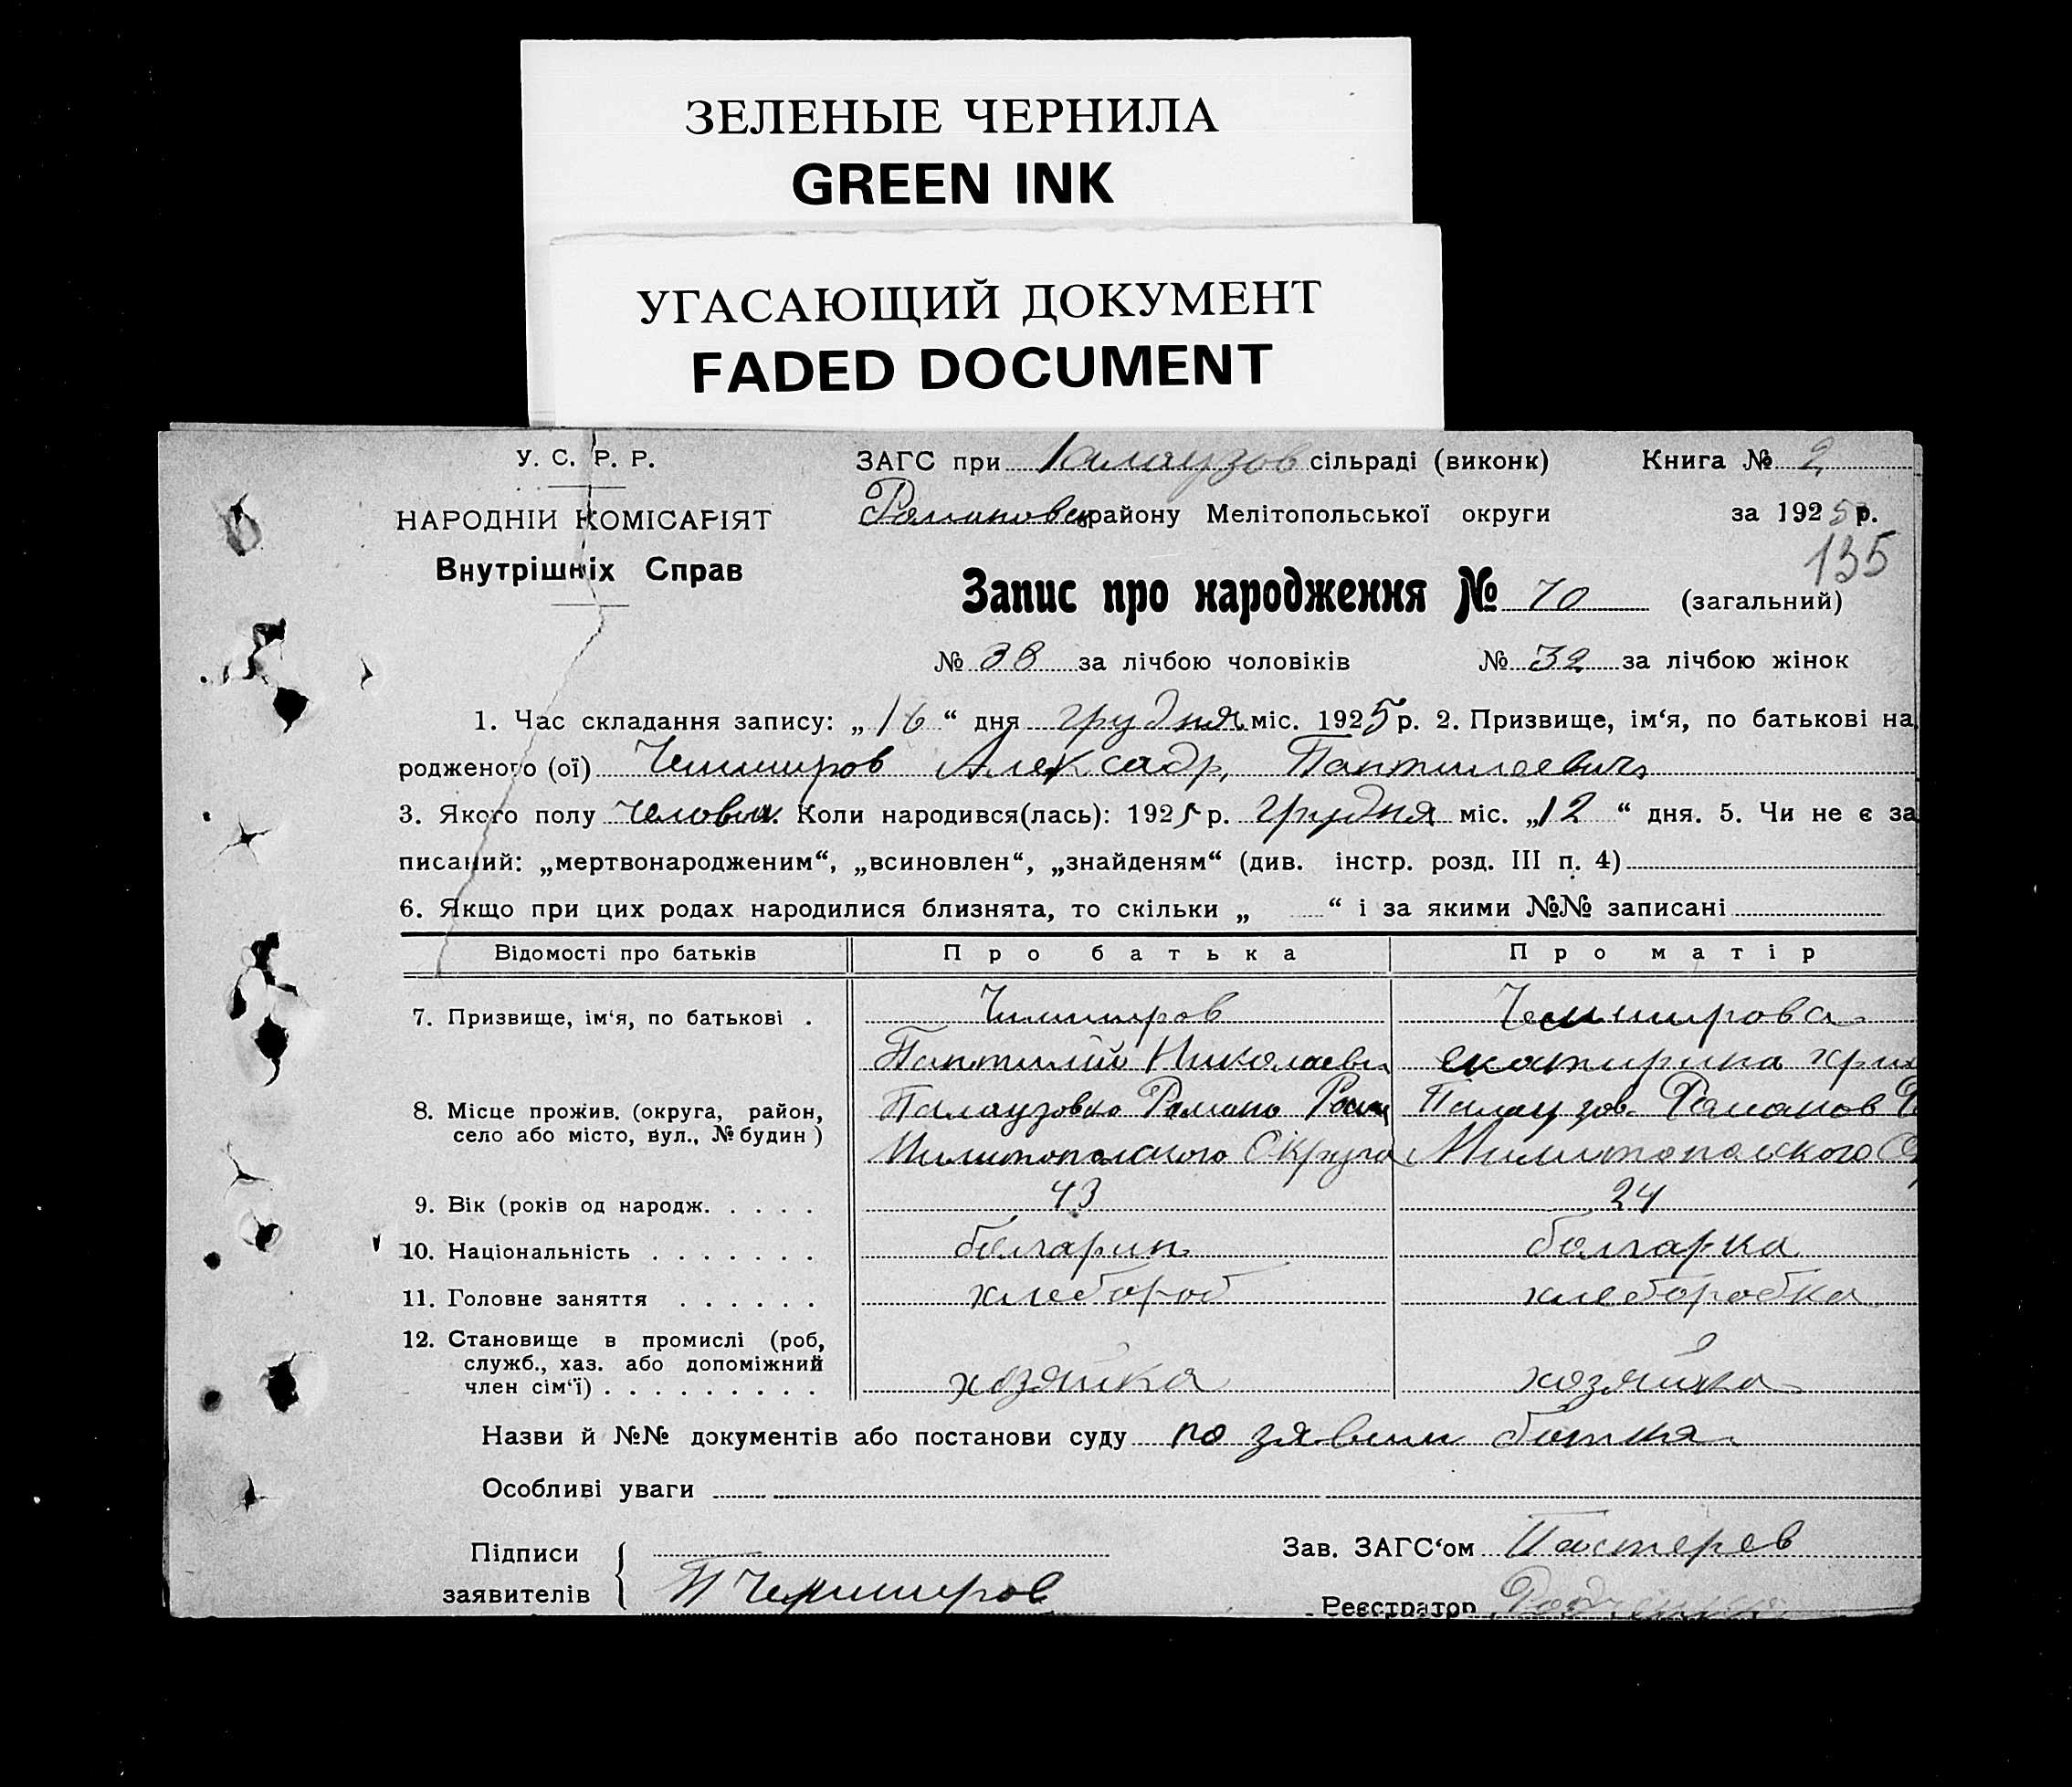 ЗЕЛЕНЫЕ ЧЕРНИЛА
GREEN INK
УГАСАЮЩИЙ ДОКУМЕНТ
FADED DOCUMENT
У. С. Р. Р.
НАРОДНІЙ КОМІСАРІЯТ
Внутрішніх Справ
ЗАГС при Палаузов сільраді (виконк) Книга № 2
Романовск району Мелітопольської округи за 1925 р.
135
Запис про народження № 70 (загальний)
№ 38 за лічбою чоловіків № 32 за лічбою жінок
1. Час складання запису: „16“ дня грудня міс. 1925 р. 2. Призвище, ім‘я, по батькові на
родженого (ої) Чимширов Алексадр Пантилеевич
3. Якого полу Коли народився(лась): 1925 р. грудня міс. „12“ дня. 5. Чи не є за
писаний: „мертвонародженим“, „всиновлен“, „знайденям“ (див. інстр. розд. III п. 4)
6. Якщо при цих родах народилися близнята, то скільки „ “ і за якими №№ записані
Відомості про батьків Про батька Про матір
7. Призвище, ім‘я, по батькові . Чимширов Чемширова
Пантилій Николаеви екатирина хрис
8. Місце прожив. (округа, район, село або місто, вул., № будин) Палаузовка Романо Палаузов. Романов
Милитопольского Округа Милитопольского
9. Вік (років од народж. . . . . 43 24
10. Національність . . . . . . . болгарин болгарка
11. Головне заняття . . . . . . хлебороб хлеборобка
12. Становище в промислі (роб, служб., хаз. або допоміжний член сім‘ї) . . . . . . . . . хозяйка хозяйка
Назви й №№ документів або постанови суду по зяви батька
Особливі уваги
Підписи заявителів П Чемширов
Зав. ЗАГС‘ом Пастерев
Реєстратор